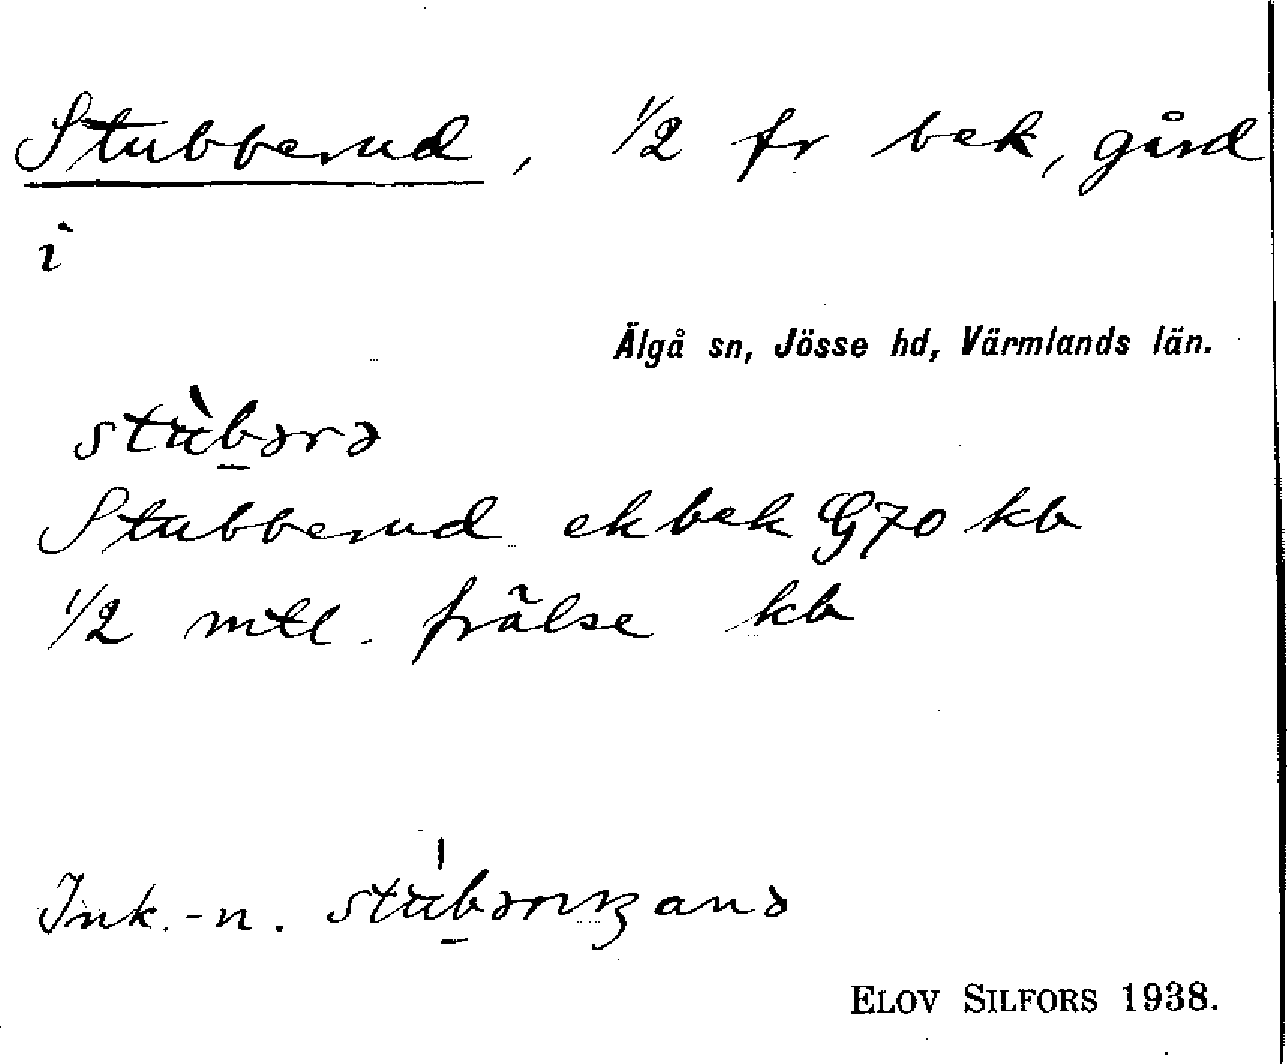 Stubberud, 1/2 fr bek, gård
i
Älgå sn, Jösse hd, Värmlands län.
stùb̠ərə
Stubberud ek bek G70 kb
1/2 mtl. frälse kb
Ink.-n.
ELOV SILFORS 1938.